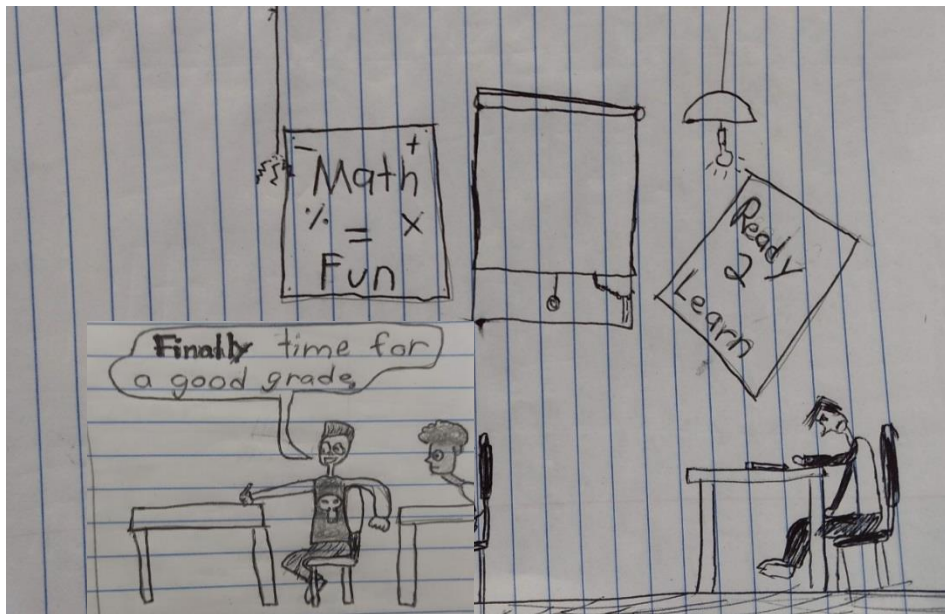 - +
Math
% = x
Fun
Ready
2
Learn
Finally time for
a good grade